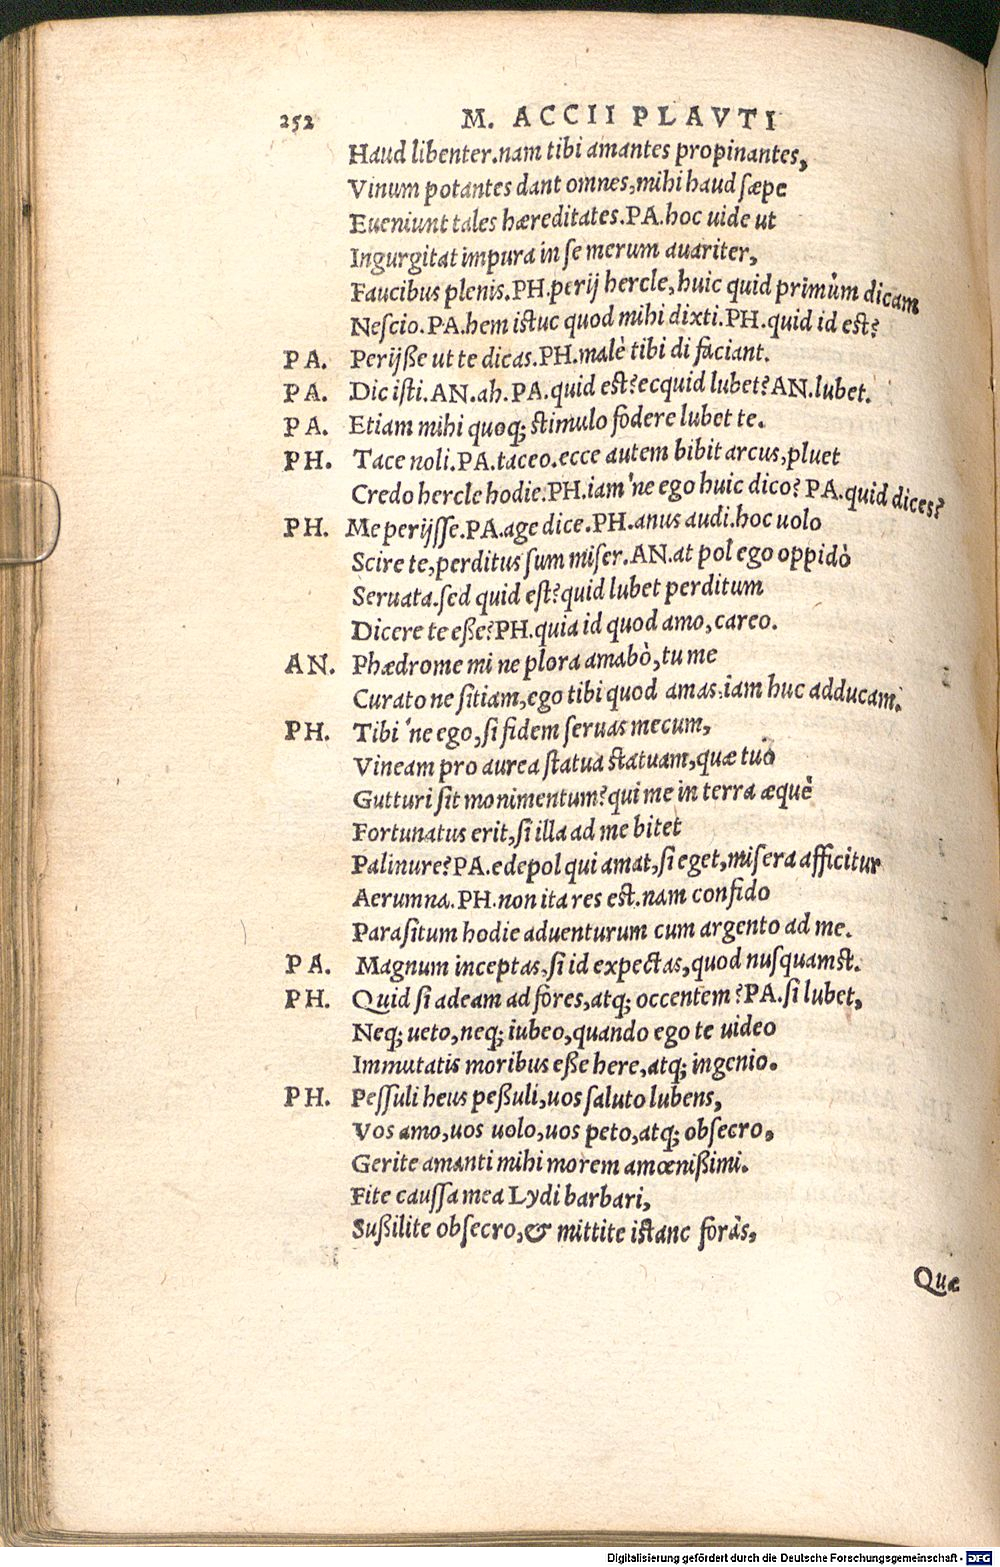 252 M. ACCII PLAVTI
Haud libenter.nam tibi amantes propinantes,
Vinum potantes dant omnes,mihi haud sæpe
Eueniunt tales hæreditates.PA.hoc uide ut
Ingurgitat impura in se merum auariter,
Faucibus plenis.PH.perij hercle,huic quid primùm dicam
Nescio.PA.hem istuc quod mihi dixti.PH.quid id est?
PA. Perijße ut te dicas.PH.malè tibi di faciant.
PA. Dic isti.AN.ah.PA.quid est?ecquid lubet?AN.lubet.
PA. Etiam mihi quoq; stimulo fodere lubet te.
PH. Tace noli.PA.taceo.ecce autem bibit arcus,pluet
Credo hercle hodie.PH.iam'ne ego huic dico? PA.quid dices?
PH. Me perijsse.PA.age dice.PH.anus audi.hoc uolo
Scire te,perditus sum miser.AN.at pol ego oppidò
Seruata.sed quid est?quid lubet perditum
Dicere te eße?PH.quia id quod amo,careo.
AN. Phædrome mi ne plora amabò,tu me
Curato ne sitiam,ego tibi quod amas.iam huc adducam.
PH. Tibi'ne ego,si fidem seruas mecum,
Vineam pro aurea statua statuam,quæ tuo
Gutturi sit monimentum?qui me in terra æquè
Fortunatus erit,si illa ad me bitet
Palinure?PA.edepol qui amat,si eget,misera afficitur
Aerumna.PH.non ita res est.nam confido
Parasitum hodie aduenturum cum argento ad me.
PA. Magnum inceptas,si id expectas,quod nusquamst.
PH. Quid si adeam ad fores,atq; occentem?PA.si lubet,
Neq; ueto,neq; iubeo,quando ego te uideo
Immutatis moribus eße here,atq; ingenio.
PH. Pessuli heus peßuli,uos saluto lubens,
Vos amo,uos uolo,uos peto,atq; obsecro,
Gerite amanti mihi morem amœnißimi.
Fite caussa mea Lydi barbari,
Sußilite obsecro,& mittite istanc foràs,
Quæ
Digitalisierung gefördert durch die Deutsche Forschungsgemeinschaft - DFG